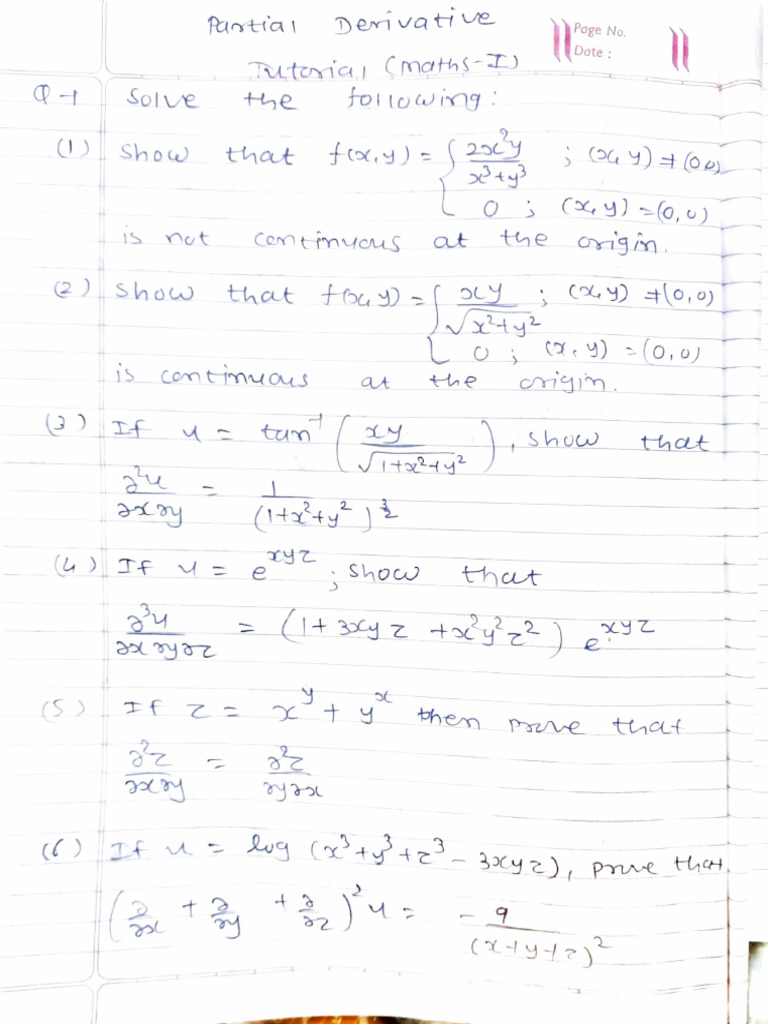 Partial Derivative
Page No.
Date :
Tutorial (Maths-I)
Q-1 Solve the following:
(1) Show that f(x,y) = { 2x²y / x³+y³ ; (x, y) ≠ (0,0)
0 ; (x, y) = (0,0)
is not continuous at the origin.
(2) Show that f(x,y) = { xy / √x²+y² ; (x,y) ≠ (0,0)
0 ; (x, y) = (0,0)
is continuous at the origin.
(3) If u = tan⁻¹ ( xy / √1+x²+y² ), show that
∂²u/∂x∂y = 1/(1+x²+y²)^3/2
(4) If u = e^xyz ; show that
∂³u/∂x∂y∂z = (1+3xyz+x²y²z²) e^xyz
(5) If z = x^y + y^x then prove that
∂²z/∂x∂y = ∂²z/∂y∂x
(6) If u = log (x³+y³+z³-3xyz), prove that
(∂/∂x + ∂/∂y + ∂/∂z)² u = - 9/(x+y+z)²